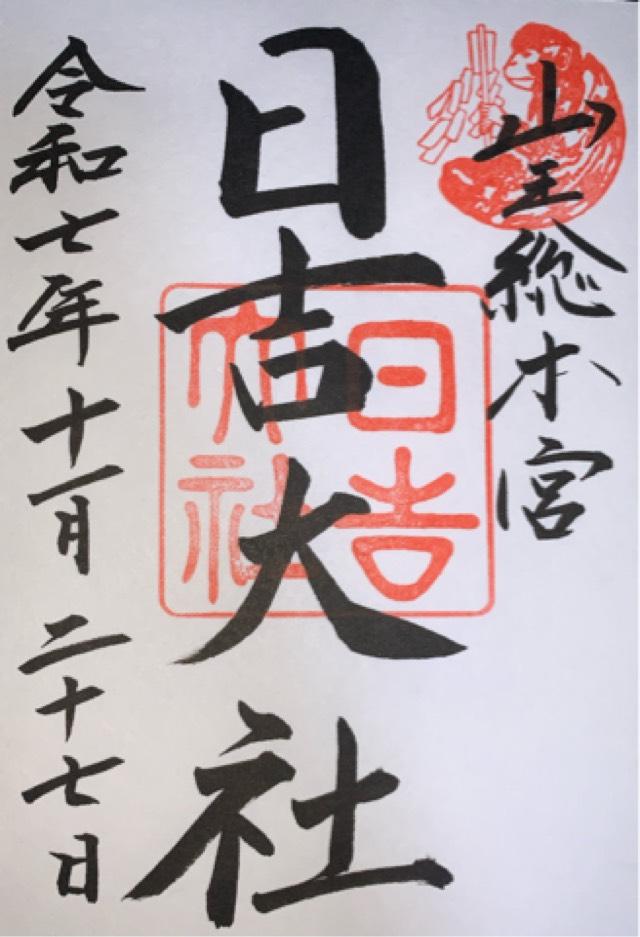 山王総本宮
日吉大社
日吉大社
令和七年十一月二十七日